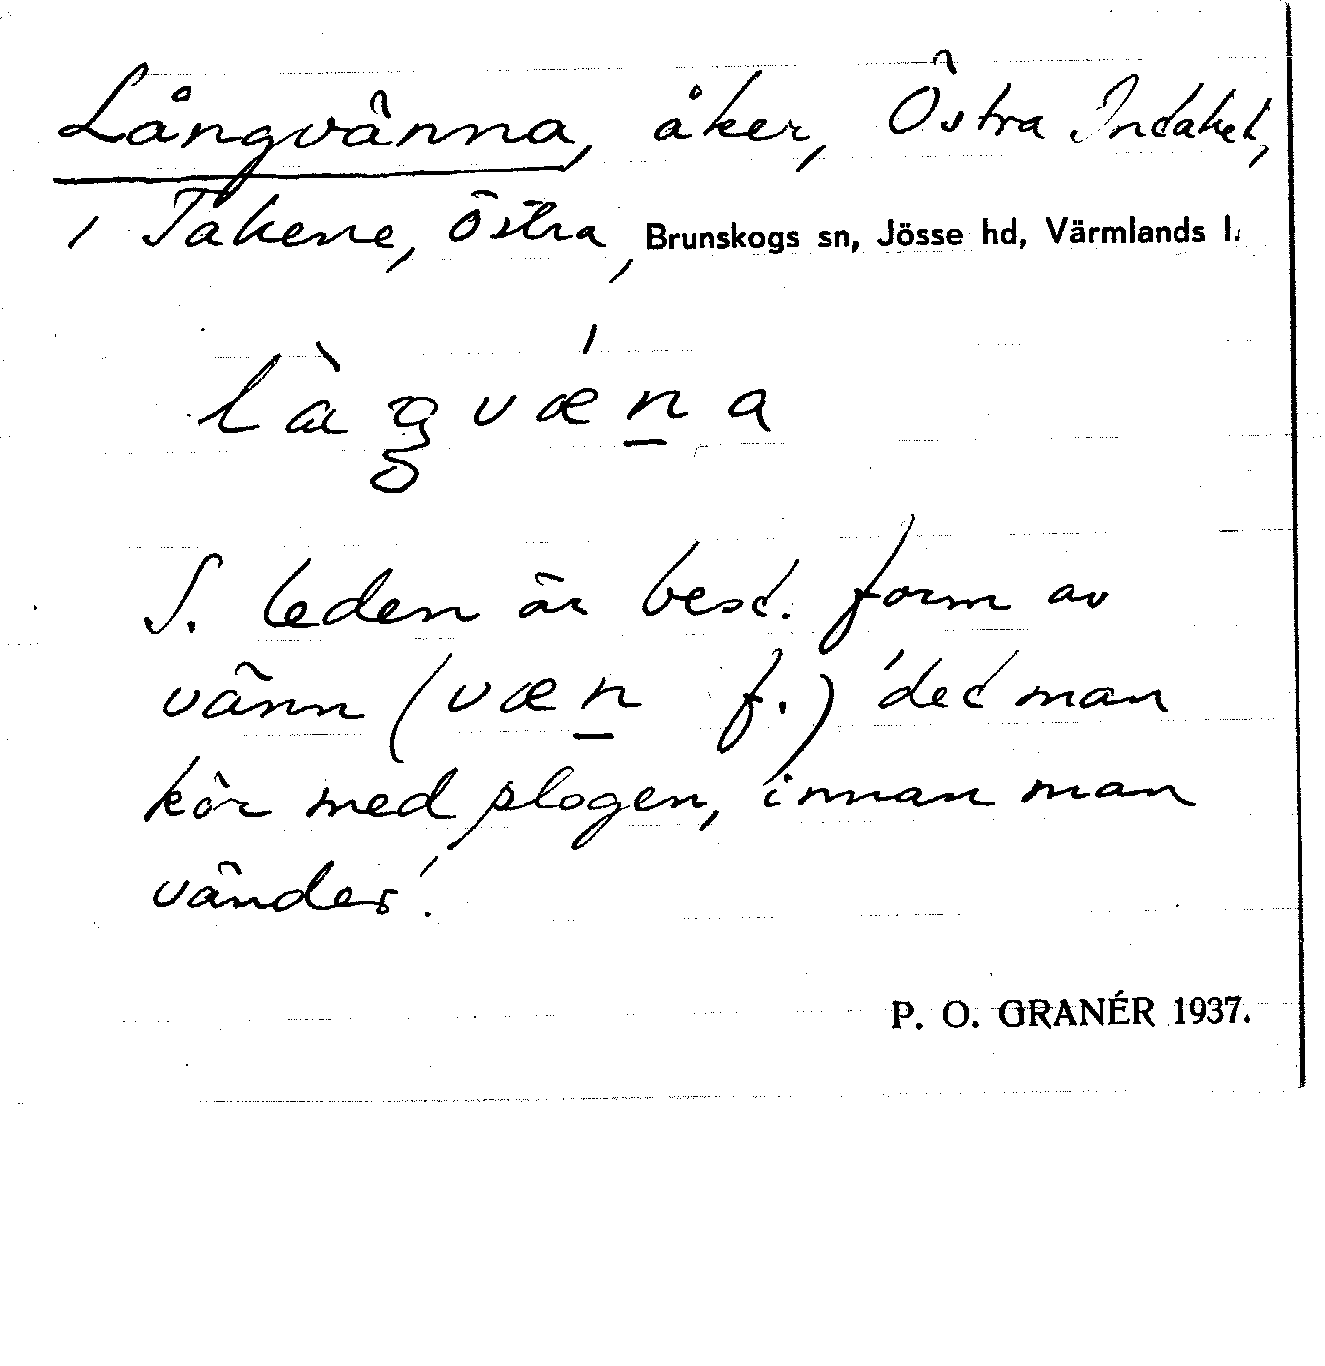 Långvänna, åker, Östra Indaket,
1 Takene, östra, Brunskogs sn, Jösse hd, Värmlands l.
S. leden är best. form av
vänn (væn f.) 'det man
kör med plogen, innan man
vänder'.
P. O. GRANÉR 1937.